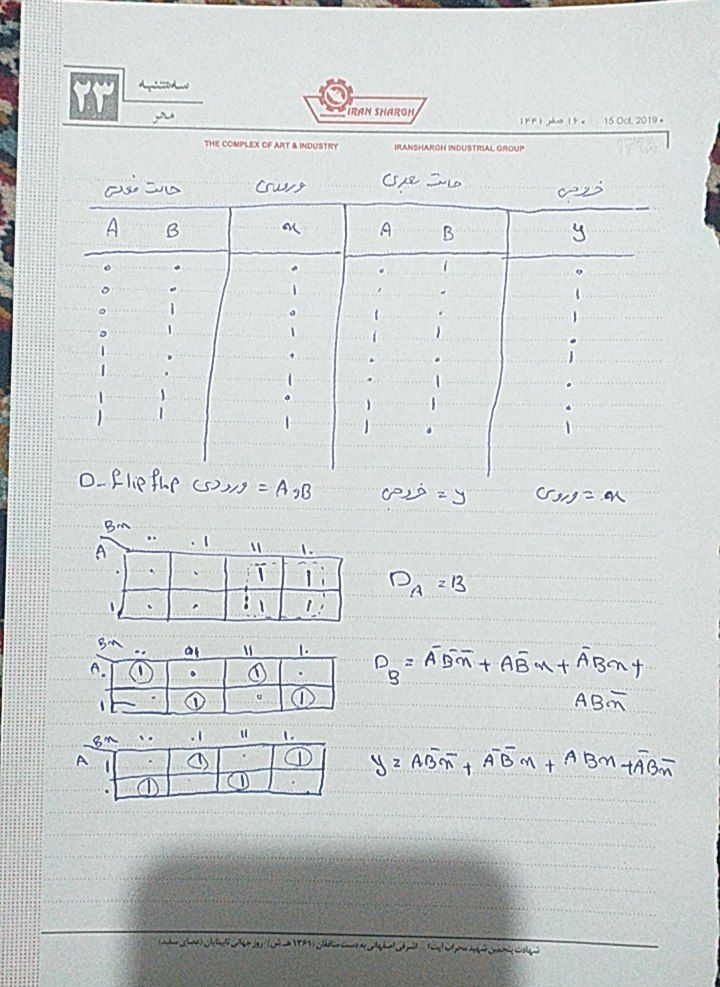 ۲۳ سه‌شنبه
مهر
IRAN SHARGH
۱۶ صفر ۱۴۴۱ 15 Oct. 2019
THE COMPLEX OF ART & INDUSTRY IRANSHARGH INDUSTRIAL GROUP
حالت فعلی ورودی حالت بعدی خروجی
A B x A B y
0 0 0 0 1 0
0 0 1 0 0 1
0 1 0 1 0 1
0 1 1 1 1 0
1 0 0 0 0 1
1 0 1 0 1 0
1 1 0 1 1 0
1 1 1 1 0 1
D-flipflop ورودی = A و B خروجی = y ورودی = x
Bx
A 00 01 11 10
0 0 0 1 1 D_A = B
1 0 0 1 1
Bx 00 01 11 10
A 0 1 0 1 0 D_B = A̅B̅x̅ + AB̅x + A̅Bx +
1 0 1 0 1 ABx̅
Bx 00 01 11 10
A 1 0 1 0 1 y = AB̅x̅ + A̅B̅x + ABx + A̅Bx̅
0 1 1 0
شهادت پنجمین شهید محراب آیت‌ا... اشرفی اصفهانی به دست منافقان (۱۳۶۱ هـ.ش) - روز جهانی نابینایان (عصای سفید)